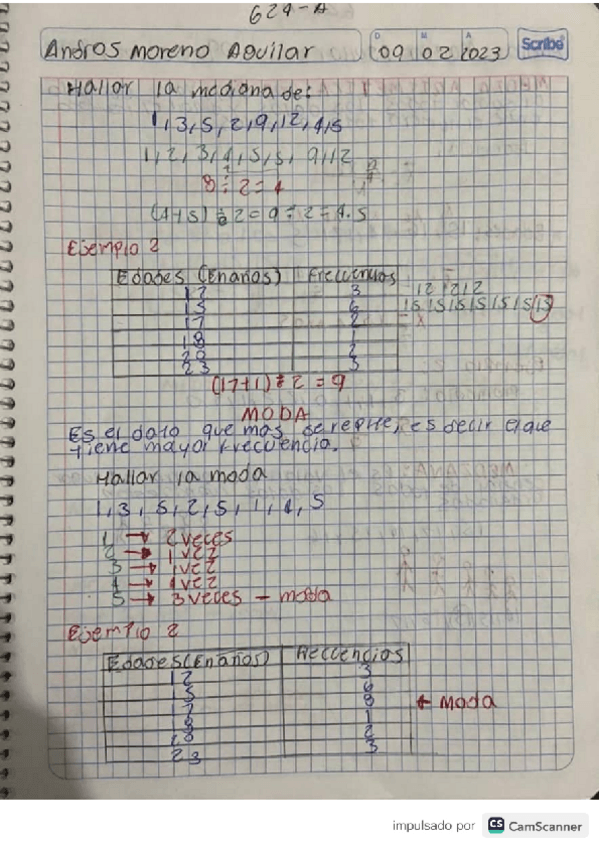 624-A
Andros Moreno Aguilar
D M A
09 02 2023
Scribe
Hallar la mediana de:
1,3,5,2,9,12,4,5
1,2,3,4,5,5,9,12
8÷2=4
(4+5)÷2=9÷2=4.5
Ejemplo 2
Edades (En años) Frecuencias
12 3 12 12 12
15 6 15 15 15 15 15 15 15
17 2
18 1
20 2
23 3
(17+1)÷2=9
MODA
Es el dato que mas se repite, es decir el que
tiene mayor frecuencia.
Hallar la moda
1,3,5,2,5,1,4,5
1 → 2 veces
2 → 1 vez
3 → 1 vez
4 → 1 vez
5 → 3 veces - moda
Ejemplo 2
Edades (En años) Frecuencias
12 3
15 6
17 8 ← Moda
1
2
23 3
impulsado por CS CamScanner